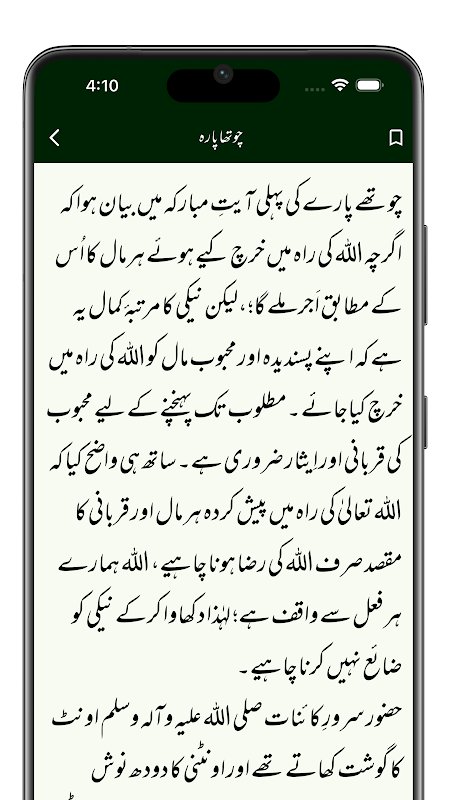 4:10
چوتھا پارہ
چوتھے پارے کی پہلی آیتِ مبارکہ میں بیان ہوا کہ
اگرچہ اللہ کی راہ میں خرچ کیے ہوئے ہر مال کا اُس
کے مطابق اَجر ملے گا؛، لیکن نیکی کا مرتبۂ کمال یہ
ہے کہ اپنے پسندیدہ اور محبوب مال کو اللہ کی راہ میں
خرچ کیا جائے ۔ مطلوب تک پہنچنے کے لیے محبوب
کی قربانی اور اِیثار ضروری ہے ۔ ساتھ ہی واضح کیا کہ
اللہ تعالیٰ کی راہ میں پیش کردہ ہر مال اور قربانی کا
مقصد صرف اللہ کی رضا ہونا چاہیے، اللہ ہمارے
ہر فعل سے واقف ہے؛ لہٰذا دکھاوا کر کے نیکی کو
ضائع نہیں کرنا چاہیے ۔
حضور سرورِ کائنات صلی اللہ علیہ وآلہ وسلم اونٹ
کا گوشت کھاتے تھے اور اونٹنی کا دودھ نوش